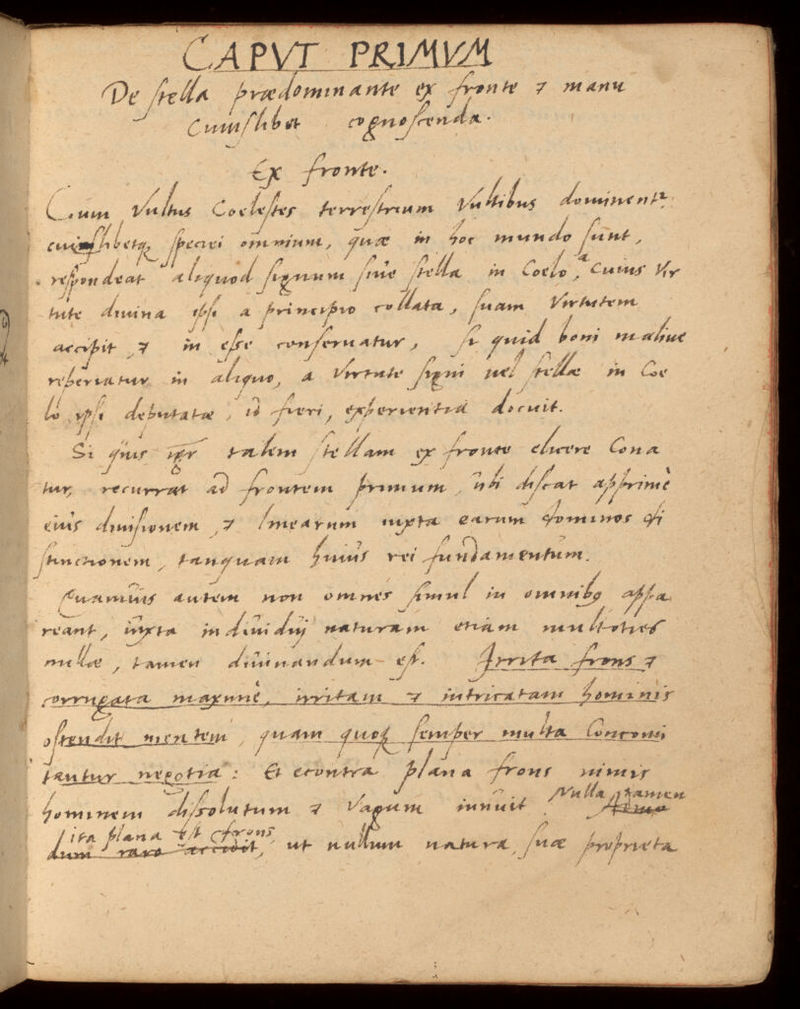 CAPVT PRIMVM
De stella prædominante ex fronte & manu
Cuiuslibet cognoscenda.
Ex fronte.
Cum Vultus Coelestes terrestrium Vultibus dominentr
cuiuslibetq speciei omnium, quæ in hoc mundo sunt,
respondeat aliquod signum siue stella in Coelo, a Cuius Vir
tute diuina ipsi a principio collata, suam Virtutem
accipit, & in esse conseruatur, si quid boni maliue
reperiatur in aliquo, a Virtute signi uel stellæ in Coe
lo ipsi deputatæ, id fieri, experientia docuit.
Si quis igr talem stellam ex fronte elicere Cona
tur, recurrat ad frontem primum, ubi discat apprimè
eius diuisionem, & linearum iuxta earum dominos di
stinctionem, tanquam huius rei fundamentum.
Quamuis autem non omnes simul in omnibq appa
reant, iuxta indiuidij naturam etiam multoties
nullæ, tamen diuinandum est. Irrita frons &
corrugata maxumè, irritam & intricatam hominis
ostendit mentem, quam quoq semper multa Concomi
tantur negotia: Et econtra plana frons nimis
hominem dissolutum & Vagum innuit Nulla tamen
ita plana est frons
dum raro accidit, ut nullum natura suæ proprieta